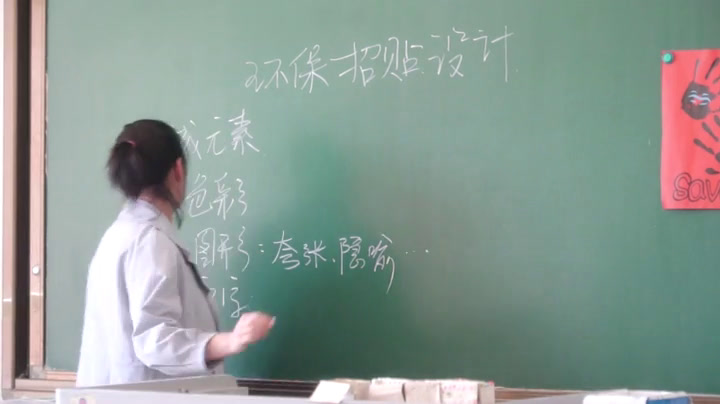 环保招贴设计
成元素
色彩
图形：夸张、隐喻…
文字
sav